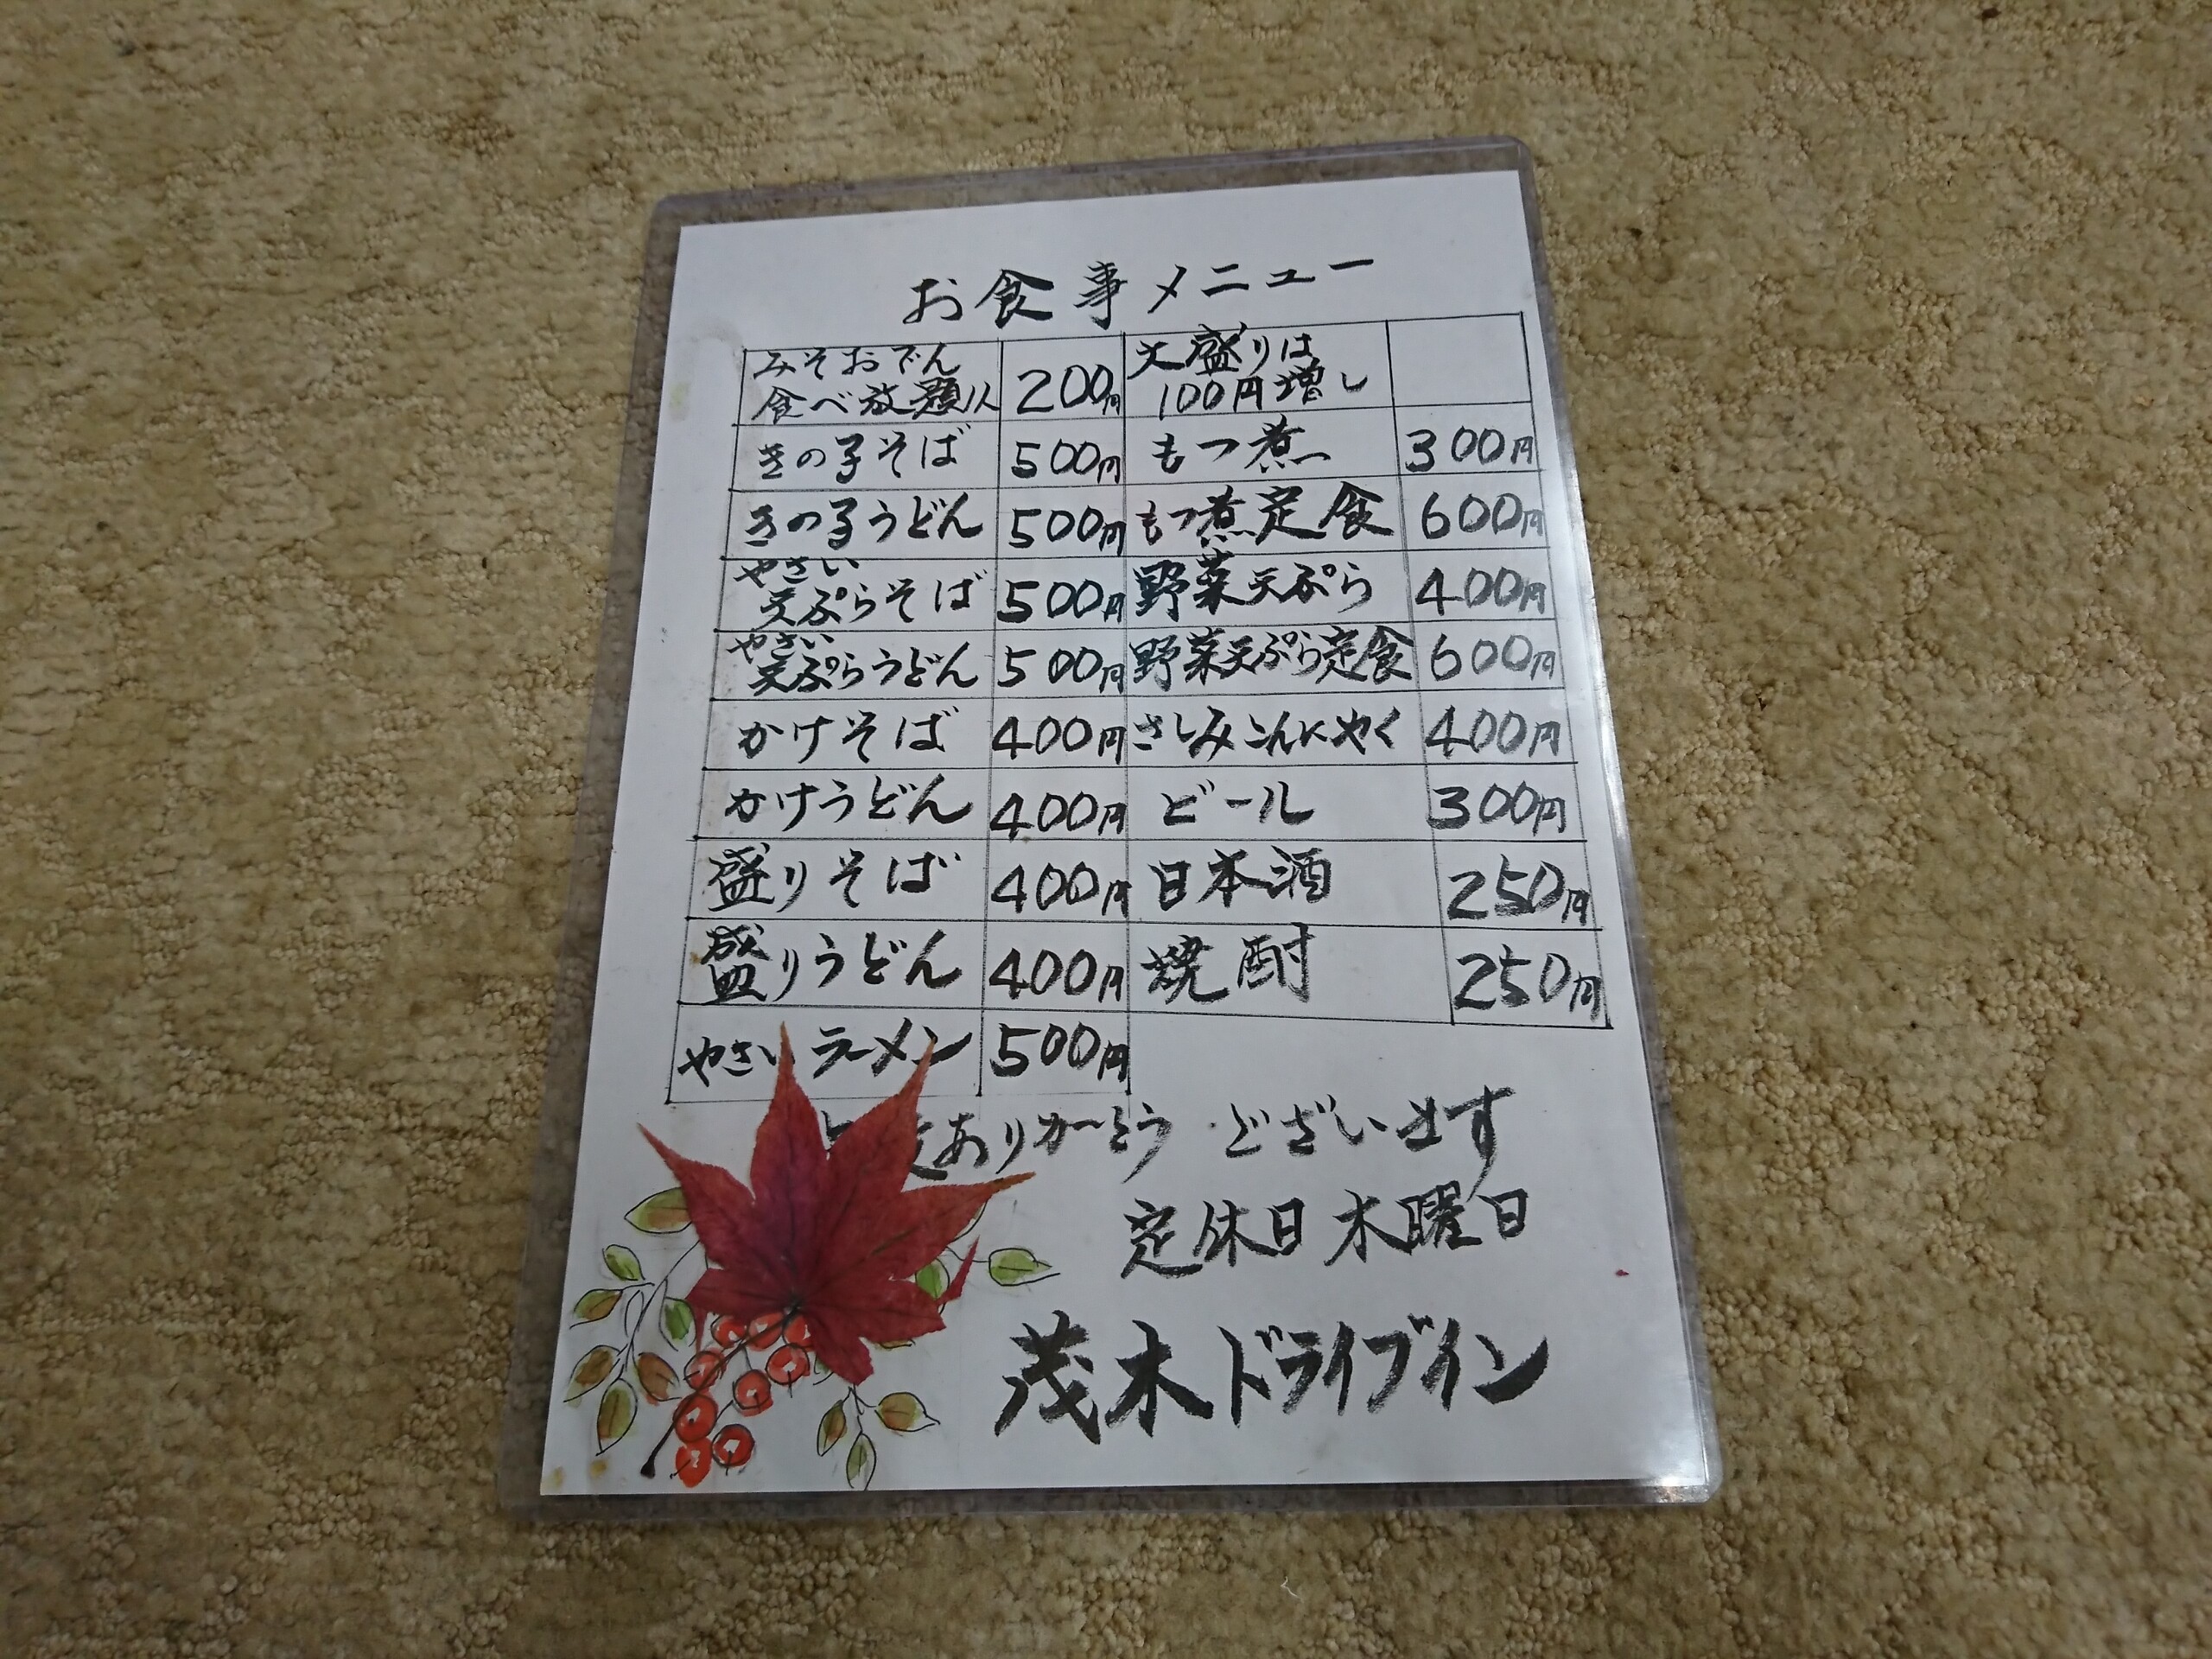 お食事メニュー
みそおでん
食べ放題1人 200円
大盛りは
100円増し
きの子そば 500円 もつ煮 300円
きの子うどん 500円 もつ煮定食 600円
やさい
天ぷらそば 500円 野菜天ぷら 400円
やさい
天ぷらうどん 500円 野菜天ぷら定食 600円
かけそば 400円 さしみこんにやく 400円
かけうどん 400円 ビール 300円
盛りそば 400円 日本酒 250円
盛りうどん 400円 焼酎 250円
やさいラーメン 500円
ありがとうございます
定休日 木曜日
茂木ドライブイン